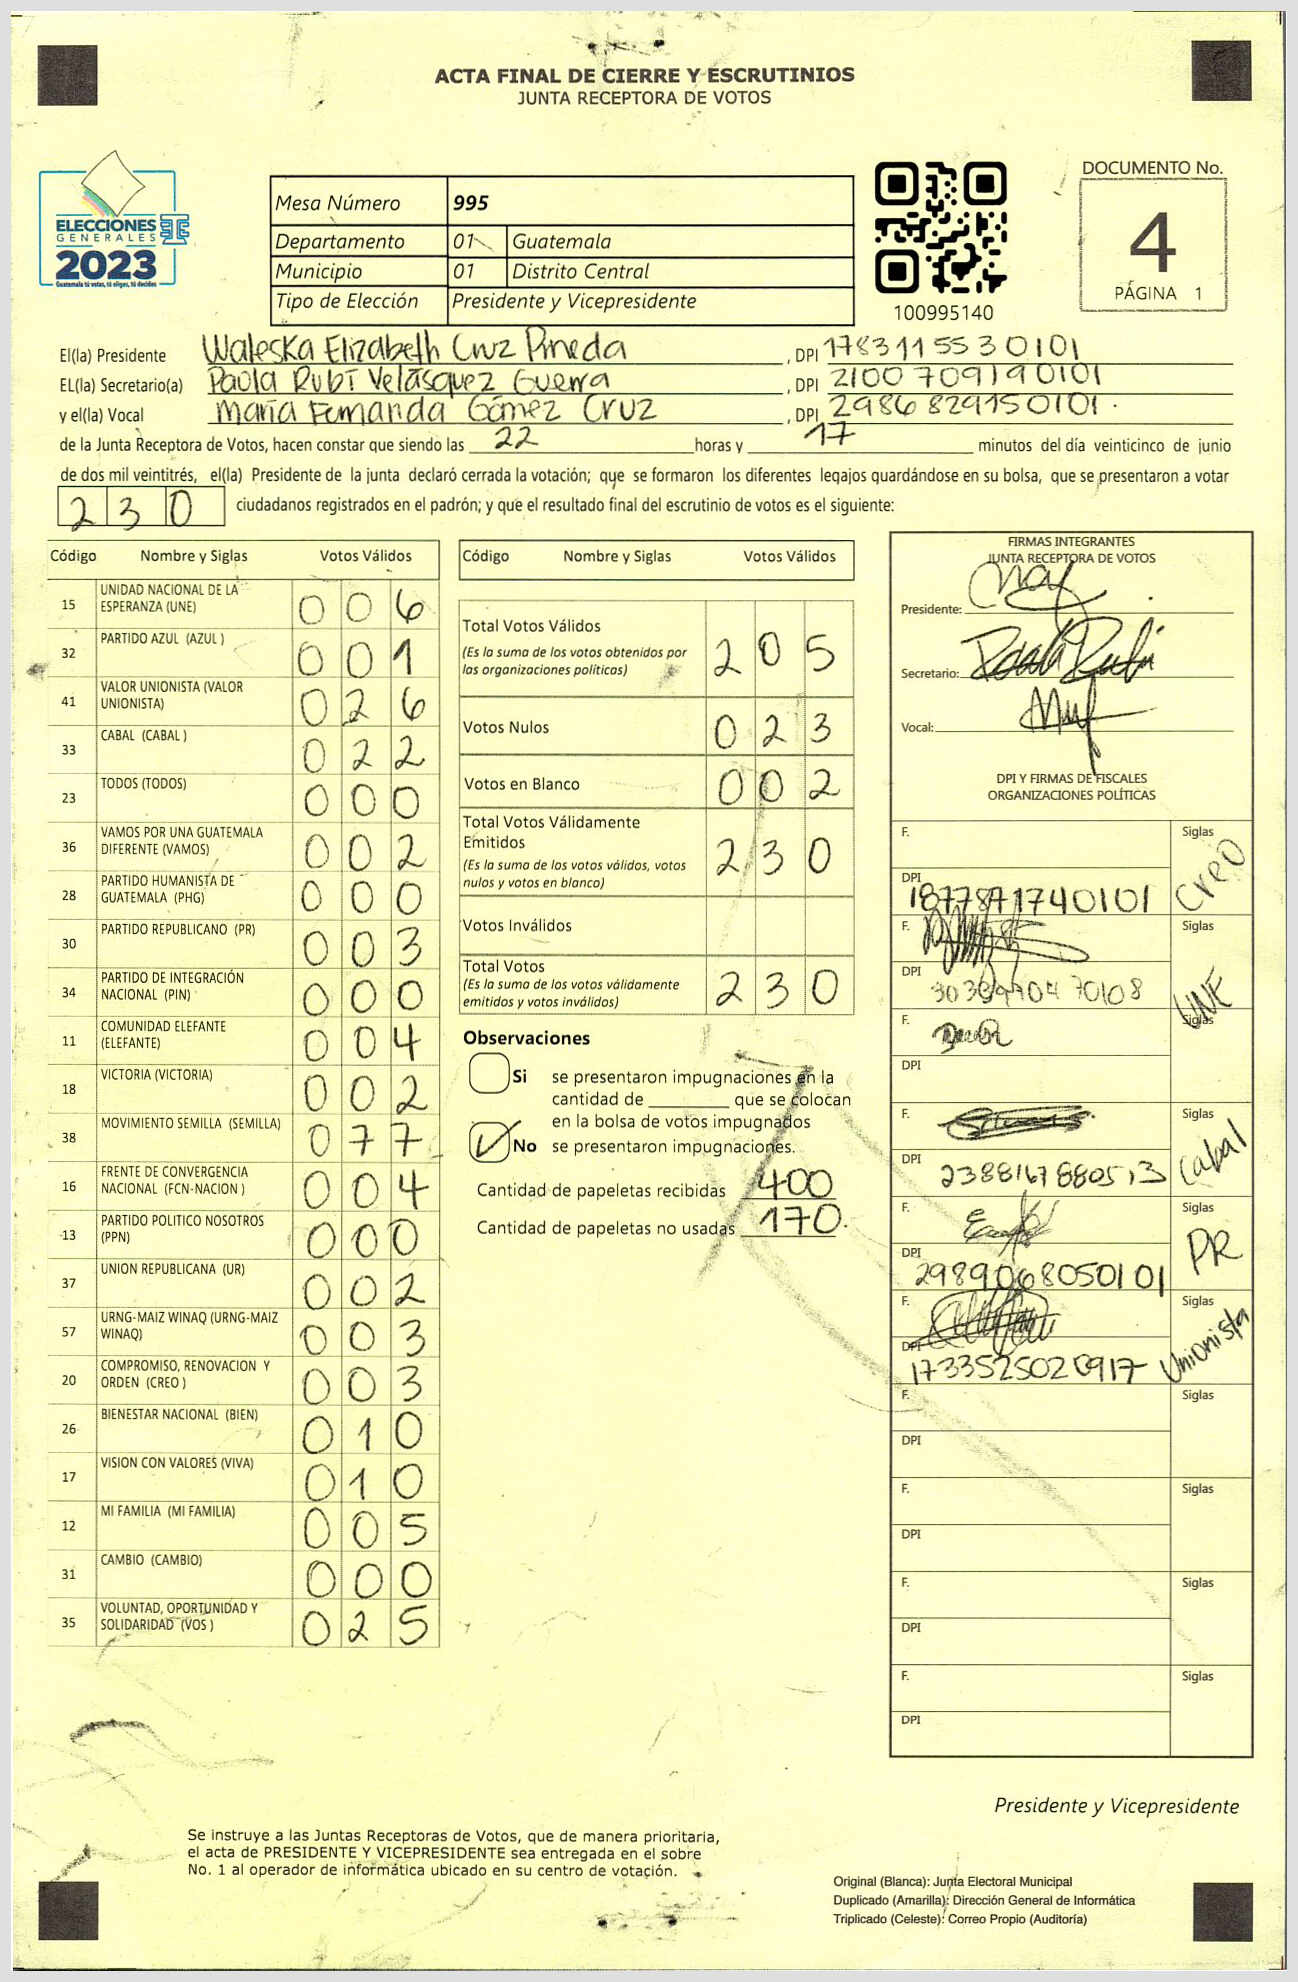 ACTA FINAL DE CIERRE Y ESCRUTINIOS
JUNTA RECEPTORA DE VOTOS
ELECCIONES
GENERALES
2023
Guatemala tú votas, tú eliges, tú decides
Mesa Número 995
Departamento 01 Guatemala
Municipio 01 Distrito Central
Tipo de Elección Presidente y Vicepresidente
100995140
DOCUMENTO No.
4
PÁGINA 1
El(la) Presidente Waleska Elizabeth Cruz Pineda, DPI 1783115530101
EL(la) Secretario(a) Paola Rubí Velásquez Guerra, DPI 2100709190101
y el(la) Vocal María Fernanda Gómez Cruz, DPI 2986829150101.
de la Junta Receptora de Votos, hacen constar que siendo las 22 horas y 17 minutos del día veinticinco de junio
de dos mil veintitrés, el(la) Presidente de la junta declaró cerrada la votación; que se formaron los diferentes legajos guardándose en su bolsa, que se presentaron a votar
230 ciudadanos registrados en el padrón; y que el resultado final del escrutinio de votos es el siguiente:
Código Nombre y Siglas Votos Válidos
15 UNIDAD NACIONAL DE LA ESPERANZA (UNE) 006
32 PARTIDO AZUL (AZUL ) 001
41 VALOR UNIONISTA (VALOR UNIONISTA) 026
33 CABAL (CABAL ) 022
23 TODOS (TODOS) 000
36 VAMOS POR UNA GUATEMALA DIFERENTE (VAMOS) 002
28 PARTIDO HUMANISTA DE GUATEMALA (PHG) 000
30 PARTIDO REPUBLICANO (PR) 003
34 PARTIDO DE INTEGRACIÓN NACIONAL (PIN) 000
11 COMUNIDAD ELEFANTE (ELEFANTE) 004
18 VICTORIA (VICTORIA) 002
38 MOVIMIENTO SEMILLA (SEMILLA) 077
16 FRENTE DE CONVERGENCIA NACIONAL (FCN-NACION ) 004
13 PARTIDO POLITICO NOSOTROS (PPN) 000
37 UNION REPUBLICANA (UR) 002
57 URNG-MAIZ WINAQ (URNG-MAIZ WINAQ) 003
20 COMPROMISO, RENOVACION Y ORDEN (CREO ) 003
26 BIENESTAR NACIONAL (BIEN) 010
17 VISION CON VALORES (VIVA) 010
12 MI FAMILIA (MI FAMILIA) 005
31 CAMBIO (CAMBIO) 000
35 VOLUNTAD, OPORTUNIDAD Y SOLIDARIDAD (VOS ) 025
Código Nombre y Siglas Votos Válidos
Total Votos Válidos 205
(Es la suma de los votos obtenidos por
las organizaciones políticas)
Votos Nulos 023
Votos en Blanco 002
Total Votos Válidamente
Emitidos 230
(Es la suma de los votos válidos, votos
nulos y votos en blanco)
Votos Inválidos
Total Votos 230
(Es la suma de los votos válidamente
emitidos y votos inválidos)
Observaciones
Si se presentaron impugnaciones en la
cantidad de ________ que se colocan
en la bolsa de votos impugnados
No se presentaron impugnaciones.
Cantidad de papeletas recibidas 400
Cantidad de papeletas no usadas 170.
FIRMAS INTEGRANTES
JUNTA RECEPTORA DE VOTOS
Presidente:
Secretario: Paola Rubí
Vocal:
DPI Y FIRMAS DE FISCALES
ORGANIZACIONES POLÍTICAS
F. Siglas Creo
DPI 1877871740101
F. Siglas UNE
DPI
F. Siglas
DPI
F. Siglas Cabal
DPI 2388167880513
F. Siglas PR
DPI 2989068050101
F. Siglas Unionista
DPI 1733525020917
F. Siglas
DPI
F. Siglas
DPI
F. Siglas
DPI
F. Siglas
DPI
Presidente y Vicepresidente
Se instruye a las Juntas Receptoras de Votos, que de manera prioritaria,
el acta de PRESIDENTE Y VICEPRESIDENTE sea entregada en el sobre
No. 1 al operador de informática ubicado en su centro de votación.
Original (Blanca): Junta Electoral Municipal
Duplicado (Amarilla): Dirección General de Informática
Triplicado (Celeste): Correo Propio (Auditoría)